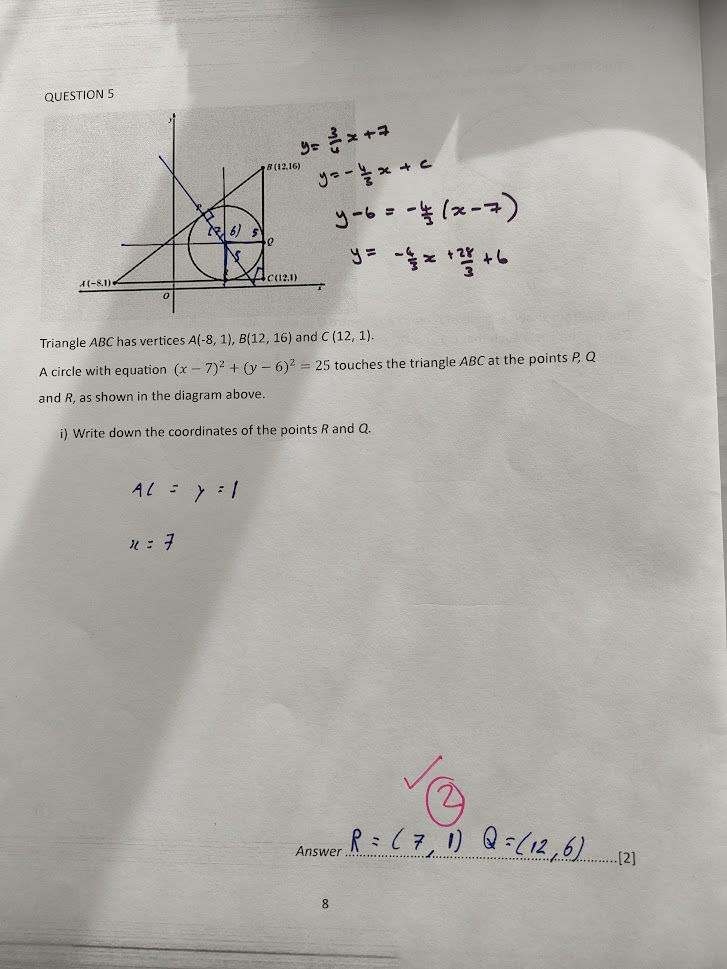 QUESTION 5
y
y = 3/4 x + 7
B(12,16)
y = - 4/3 x + c
P
y - 6 = - 4/3 (x - 7)
(7, 6) 5
Q
5
y = - 4/3 x + 28/3 + 6
A(-8,1)
C(12,1)
O
x
Triangle ABC has vertices A(-8, 1), B(12, 16) and C (12, 1).
A circle with equation (x − 7)² + (y − 6)² = 25 touches the triangle ABC at the points P, Q
and R, as shown in the diagram above.
i) Write down the coordinates of the points R and Q.
AC = y = 1
x = 7
✓
2
Answer R = (7, 1) Q = (12, 6) [2]
8